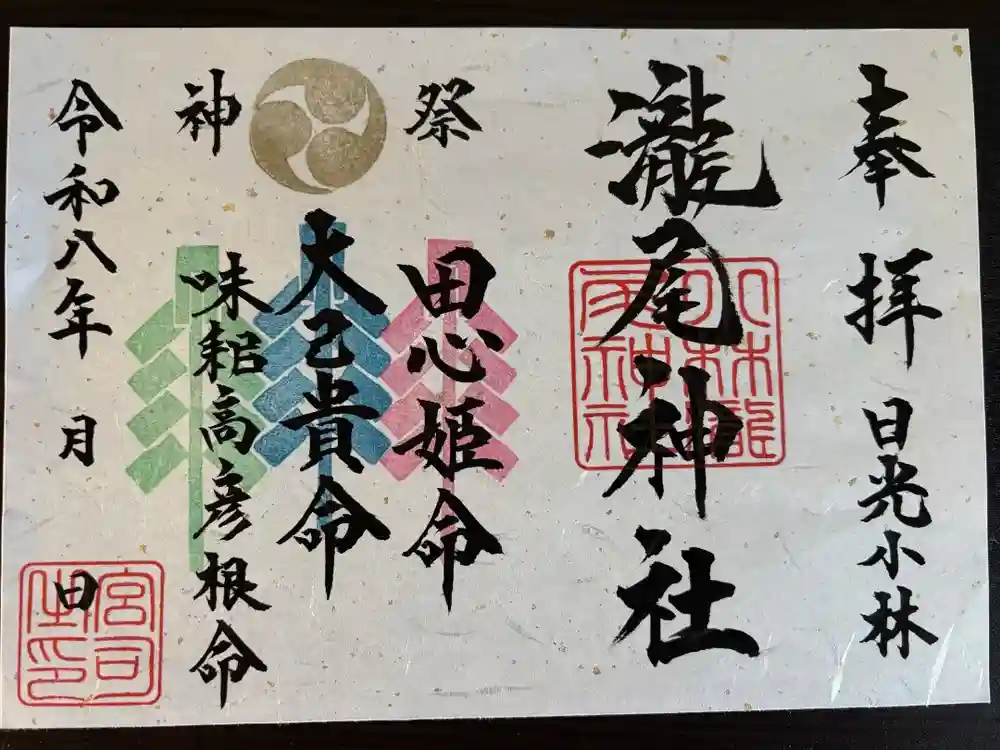 奉拝 日光小林
瀧尾神社
祭神
田心姫命
大己貴命
味耜高彦根命
令和八年 月 日
宮司之印